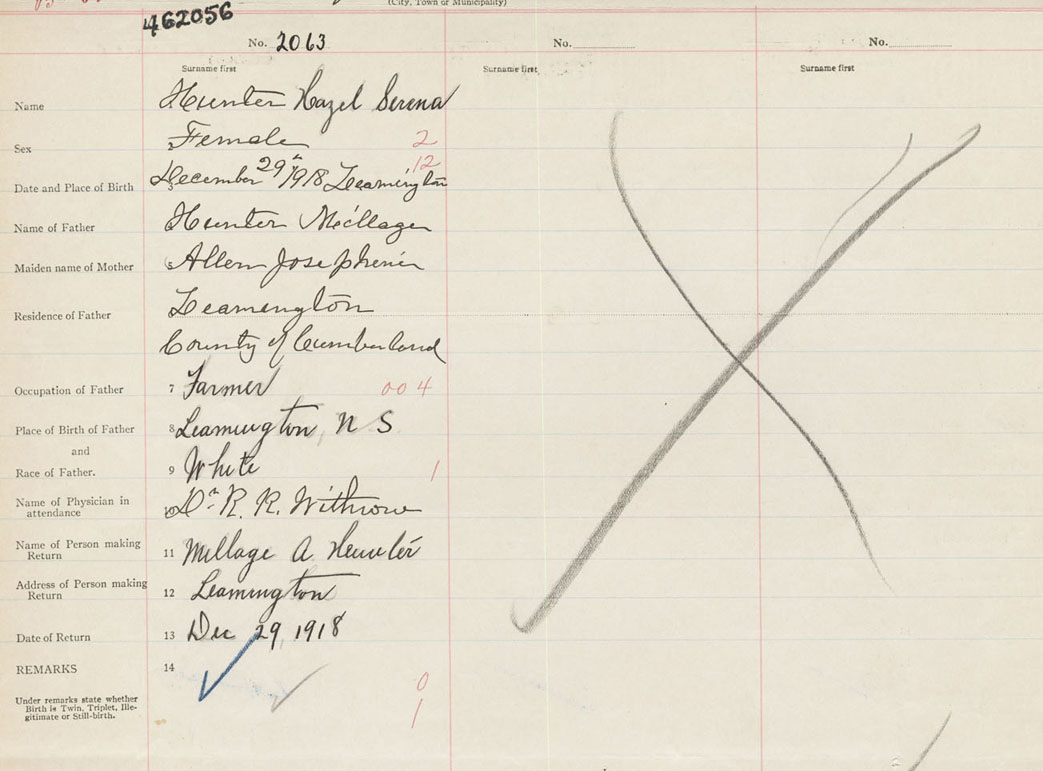 (City, Town or Municipality)
462056
No. 2063 No. No.
Surname first Surname first Surname first
Name Hunter Hazel Serena
Sex Female 2
12
Date and Place of Birth December 29th 1918 Leamington
Name of Father Hunter Millage
Maiden name of Mother 5 Allen Josephine
Residence of Father Leamington
County of Cumberland
Occupation of Father 7 Farmer 004
Place of Birth of Father 8 Leamington, N S
and
Race of Father. 9 White 1
Name of Physician in attendance 10 Dr. R. R. Withrow
Name of Person making Return 11 Millage A Hunter
Address of Person making Return 12 Leamington
Date of Return 13 Dec 29, 1918
REMARKS 14
0
Under remarks state whether
Birth is Twin, Triplet, Ille-
gitimate or Still-birth. 1